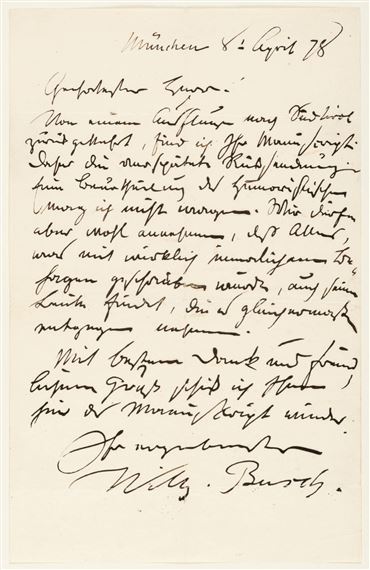 München 8t April 78
Geehrtester Herr!
Von einem Ausfluge nach Südtirol
zurückgekehrt, find ich Ihr Manuscript.
Daher die verspätete Rücksendung.
Eine Beurtheilung des Humoristischen
mag ich nicht wagen. Wir dürfen
aber wohl annehmen, daß Alles,
was mit wirklich innerlichem Be-
hagen geschrieben wurde, auch seine
Leute findet, die es gleichermaßen
entgegen nehmen.
Mit bestem Dank und freund-
lichem Gruß schick ich Ihnen
hier das Manuscript wieder.
Ihr ergebenster
Wilh. Busch.